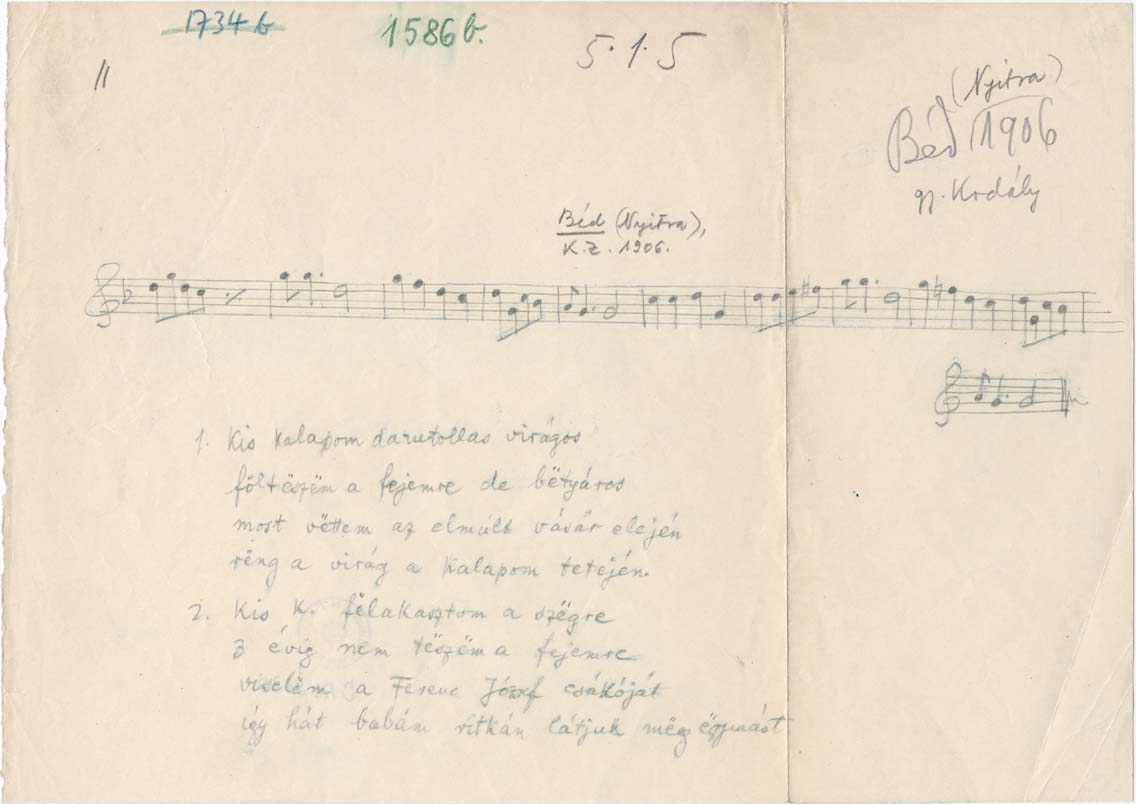 1734 b
1586 b.
5.1.5
11
(Nyitra)
Béd 1906
gy. Kodály
Béd (Nyitra),
K.Z. 1906.
1. Kis kalapom darutollas virágos
föltëszëm a fejemre de bëtyáros
most vëttem az elmúlt vásár elején
rëng a virág a kalapom tetején.
2. Kis K. fëlakasztom a szëgre
3 évig nem tëszëm a fejemre
viselëm a Ferenc József csákóját
így hát babám ritkán látjuk mëg ëgymást